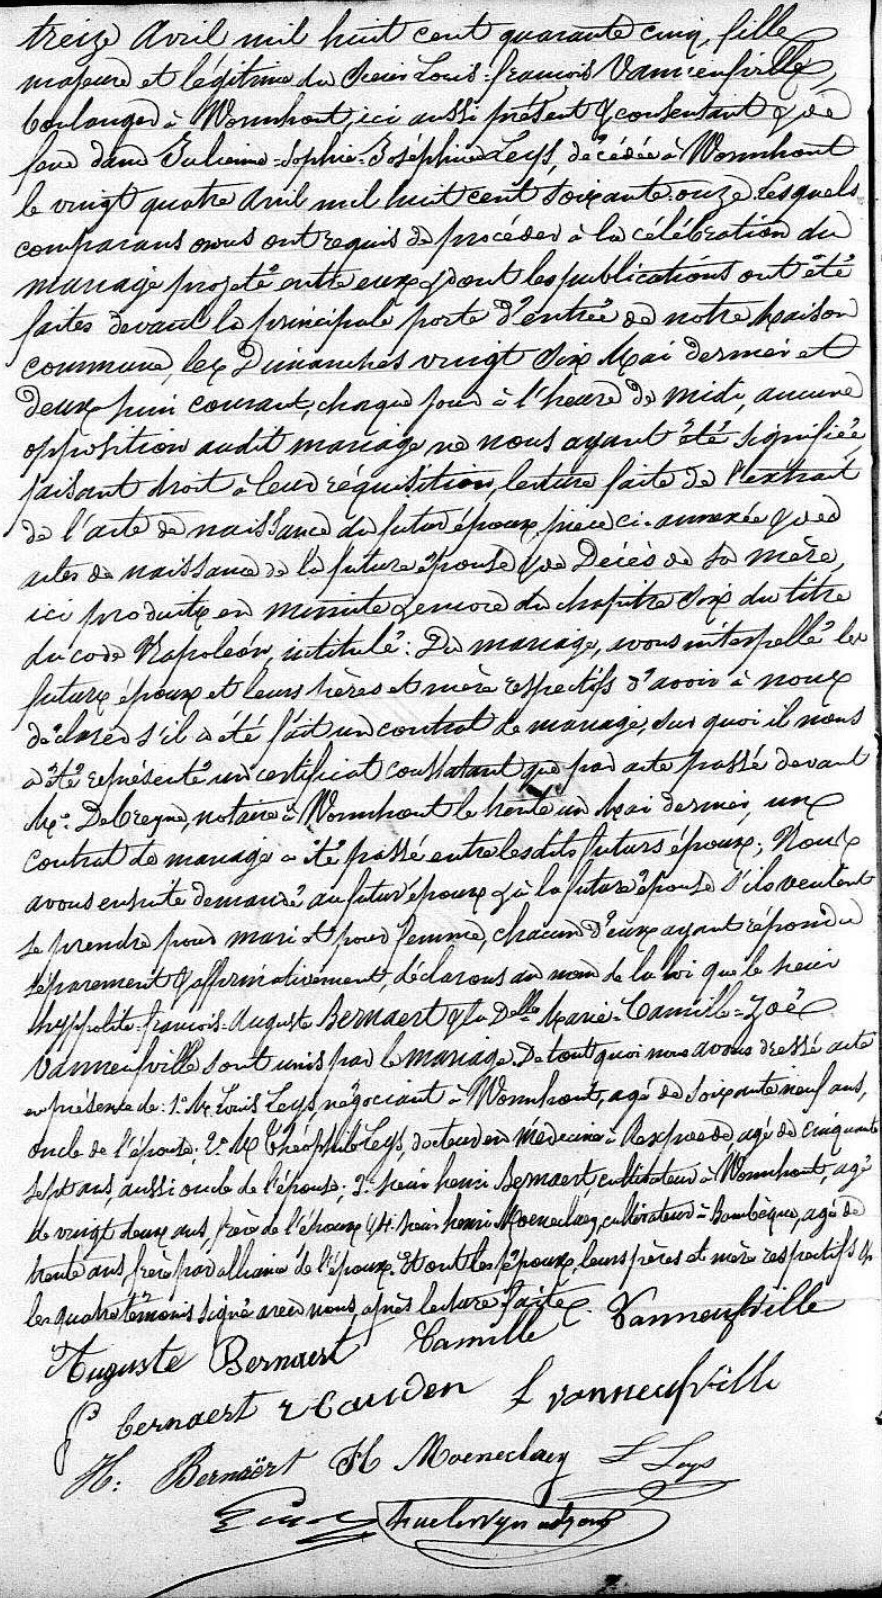 treize Avril mil huit cent quarante cinq, fille
majeure et légitime du Sieur Louis-françois Vanneufville,
boulanger à Wormhout, ici aussi présent & consentant & de
feue dame Julienne-Sophie-Joséphine Leys, décédée à Wormhout
le vingt quatre Avril mil huit cent soixante-onze. Lesquels
comparans nous ont requis de procéder à la célébration du
mariage projeté entre eux & dont les publications ont été
faites devant la principale porte d'entrée de notre Maison
commune, les Dimanches vingt six Mai dernier et
deux Juin courant, chaque jour à l'heure de midi, aucune
opposition audit mariage ne nous ayant été signifiée,
faisant droit à leur réquisition, lecture faite de l'extrait
de l'acte de naissance du futur époux, pièce ci-annexée & des
actes de naissance de la future épouse & de Décès de sa mère,
ici produits en minute & encore du chapitre Six du titre
du code Napoléon, intitulé : Du mariage, avons interpellé les
futurs époux et leurs pères et mère respectifs d'avoir à nous
déclarer s'il a été fait un contrat de mariage, sur quoi il nous
a été représenté un certificat constatant que par acte passé devant
Me. Debreyne, notaire à Wormhout le trente un Mai dernier, un
contrat de mariage a été passé entre lesdits futurs époux; Nous
avons ensuite demandé au futur époux & à la future épouse s'ils veulent
se prendre pour mari et pour femme, chacun d'eux ayant répondu
séparément & affirmativement, déclarons au nom de la loi que le sieur
hyppolite-françois-Auguste Bernaert & la Delle Marie-Camille-Zoé
Vanneufville sont unis par le mariage. De tout quoi nous avons dressé acte
en présence de: 1° M. Louis Leys, négociant à Wormhout, agé de soixante neuf ans,
oncle de l'épouse; 2° M Théophile Leys, docteur en médecine à Rexpoede, agé de cinquante
sept ans, aussi oncle de l'épouse; 3° sieur henri Bernaert cultivateur à Wormhout, agé
de vingt deux ans, frère de l'époux & 4° sieur henri Moeneclaey, cultivateur à Bambèque, agé de
trente ans, frère par alliance de l'époux. Et ont les époux, leurs pères et mère respectifs &
les quatre témoins signé avec nous, après lecture faite.
Auguste Bernaert Camille Vanneufville
bernaert L vanneufville
H. Bernaërt H Moeneclaey L Leys